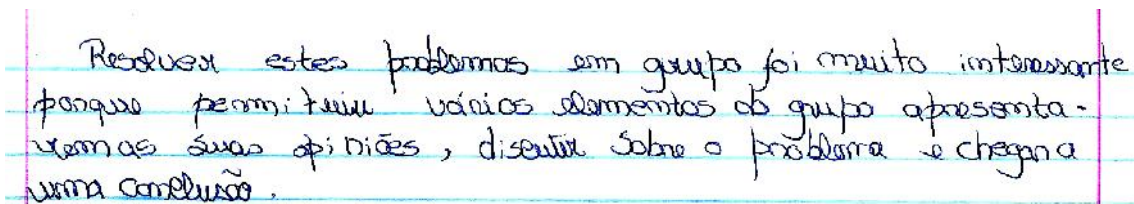 Resolver estes problemas em grupo foi muito interessante
porque permitiu vários elementos do grupo apresenta-
rem as suas opiniões, discutir sobre o problema e chegar a
uma conclusão.